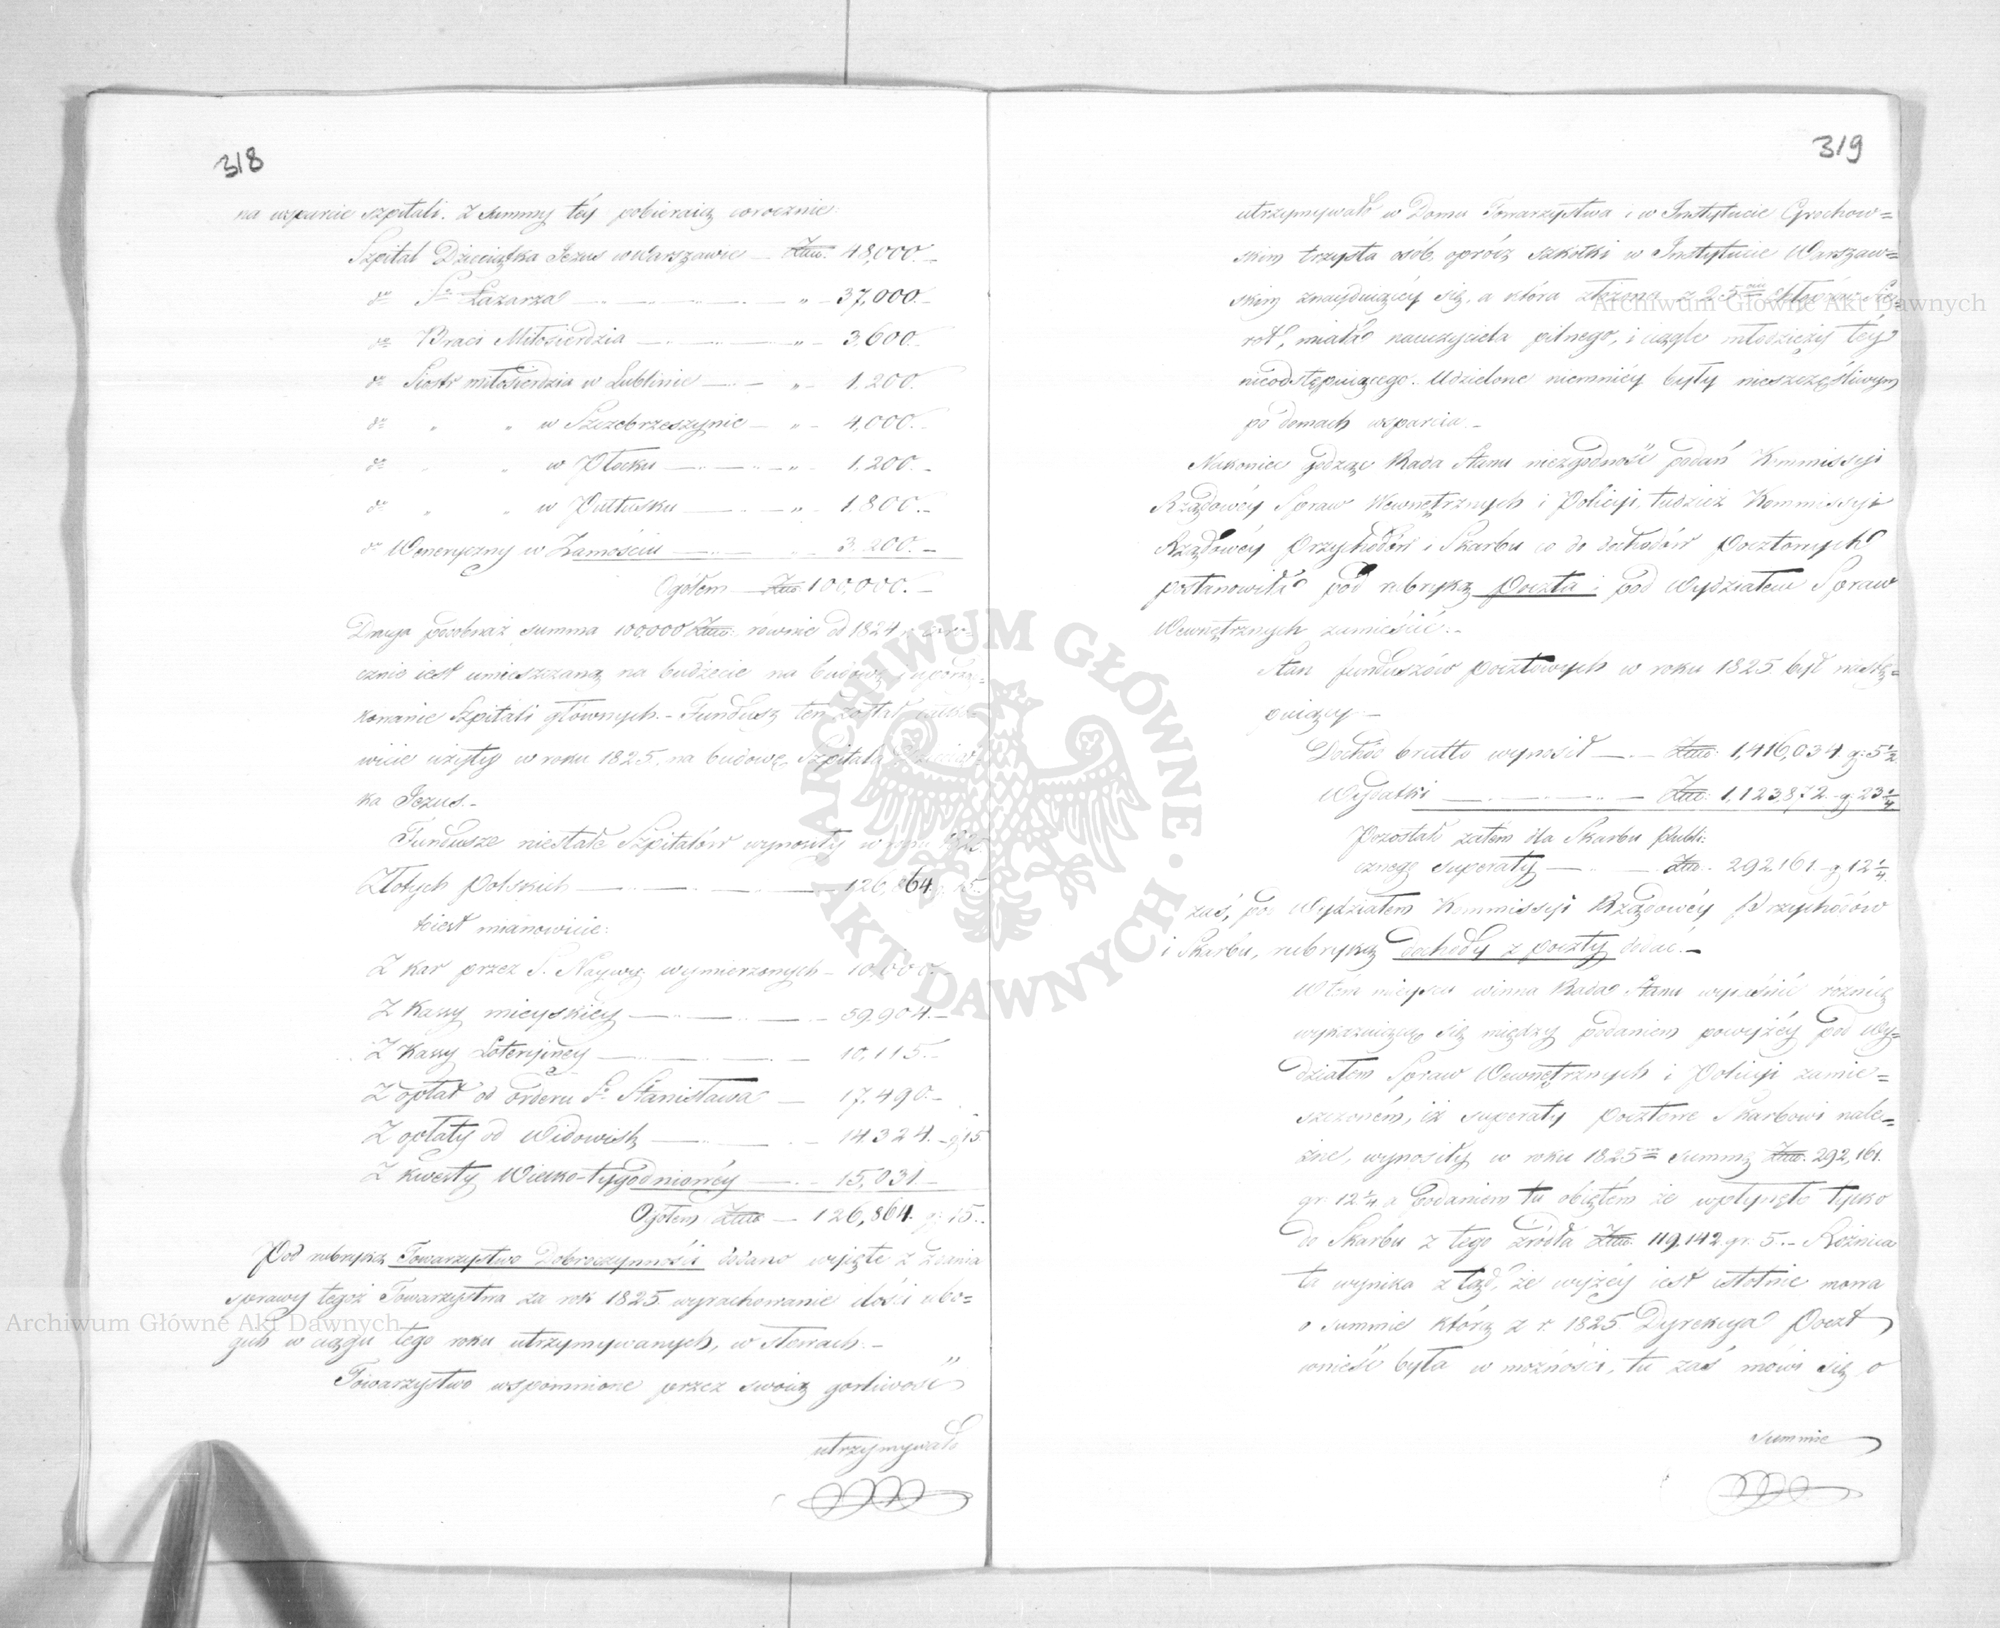 318
na wsparcie szpitali. Z summy téy pobieraią corocznie:
Szpital Dzieciątka Jezus w Warszawie — Złłp. 48,000.—
do Sgo Łazarza — " — 37,000.—
do Braci Miłosierdzia — " — 3,600.—
do Siostr miłosierdzia w Lublinie — " — 1,200.
do " " w Szczebrzeszynie — " — 4,000.—
do " " w Płocku — " — 1,200.—
do " " w Pułtusku — " — 1,800.—
do Weneryczny w Zamościu — 3,200.—
Ogółem — Złłp. 100,000.—
Druga podobnaż summa 100,000 Złłp. równie od 1824 r. coro-
cznie iest umieszczaną na budżecie na budowę i upo-
konanie Szpitali głównych. — Fundusz ten został całko-
wicie użyty w roku 1825. na budowę Szpitala Dzieciąt-
ka Jezus.—
Fundusze niestałe Szpitalów wynosiły w roku 1825
Złotych Polskich — 126,864 g. 15.
to iest mianowicie:
Z kar przez S. Naywyż. wymierzonych — 10,000.—
Z Kassy mieyskiéy — 59,904.—
Z Kassy Loteryinéy — 10,115.—
Z opłat od Orderu Sgo Stanisława — 17,490.—
Z opłaty od Widowisk — 14324. — g 15
Z kwesty Wielko-tygodniowéy — 15,031 —
Ogółem Złłp. — 126,864. g: 15.
Pod rubryką Towarzystwo Dobroczynności dodano wyięte z zdania
sprawy tegoż Towarzystwa za rok 1825. wyrachowanie ilości ubo-
gich w ciągu tego roku utrzymywanych, w słowach:—
Towarzystwo wspomnione przez swoią gorliwość
utrzymywało
319
utrzymywało w Domu Towarzystwa i w Instytucie Grochow=
skim trzysta osób, oprócz szkółki w Instytucie Warszaw=
skim znayduiącéy się, a która złożona z 25ciu Sie-
rot, miała nauczyciela pilnego, i ciągle młodzieży téy
nieodstępuiącego. Udzielone niemniéy były nieszczęśliwym
po domach wsparcia.—
Nakoniec godząc Rada Stanu niezgodność podań Kommissyi
Rządowéy Spraw Wewnętrznych i Policyi, tudzież Kommissyi
Rządowéy Przychodów i Skarbu co do dochodów Pocztowych
postanowiła pod rubryką Poczta i pod Wydziałem Spraw
Wewnętrznych zamieścić.—
Stan funduszów pocztowych w roku 1825 był nastę=
puiący —
Dochód brutto wynosił — Złłp. 1,416,034 g: 5 1/2
Wydatki — Złłp. 1,123,872 — g 23 1/4
Pozostał zatem dla Skarbu Publi:
cznego superaty — Złłp. 292,161 — g 12 1/4
zaś, pod Wydziałem Kommissyi Rządowéy Przychodów
i Skarbu, rubrykę dochody z poczty dodać.—
W tem mieyscu winna Rada Stanu wyiaśnić różnicę
wykazuiącą się między podaniem powyżéy pod Wy=
działem Spraw Wewnętrznych i Policyi zamie=
szczoném, iż superaty pocztowe Skarbowi nale=
żne, wynosiły w roku 1825m summę Złłp. 292,161.
gr. 12 1/4 a podaniem tu obiętém że wpłynęło tylko
do Skarbu z tego źródła Złłp. 119,142 gr. 5.— Różnica
ta wynika z tąd, że wyżéy iest istotnie mowa
o summie którą z r. 1825 Dyrekcya Poczt
wnieść była w możności, tu zaś mówi się o
summie
Archiwum Główne Akt Dawnych
Archiwum Główne Akt Dawnych
ARCHIWUM GŁÓWNE · AKT DAWNYCH ·